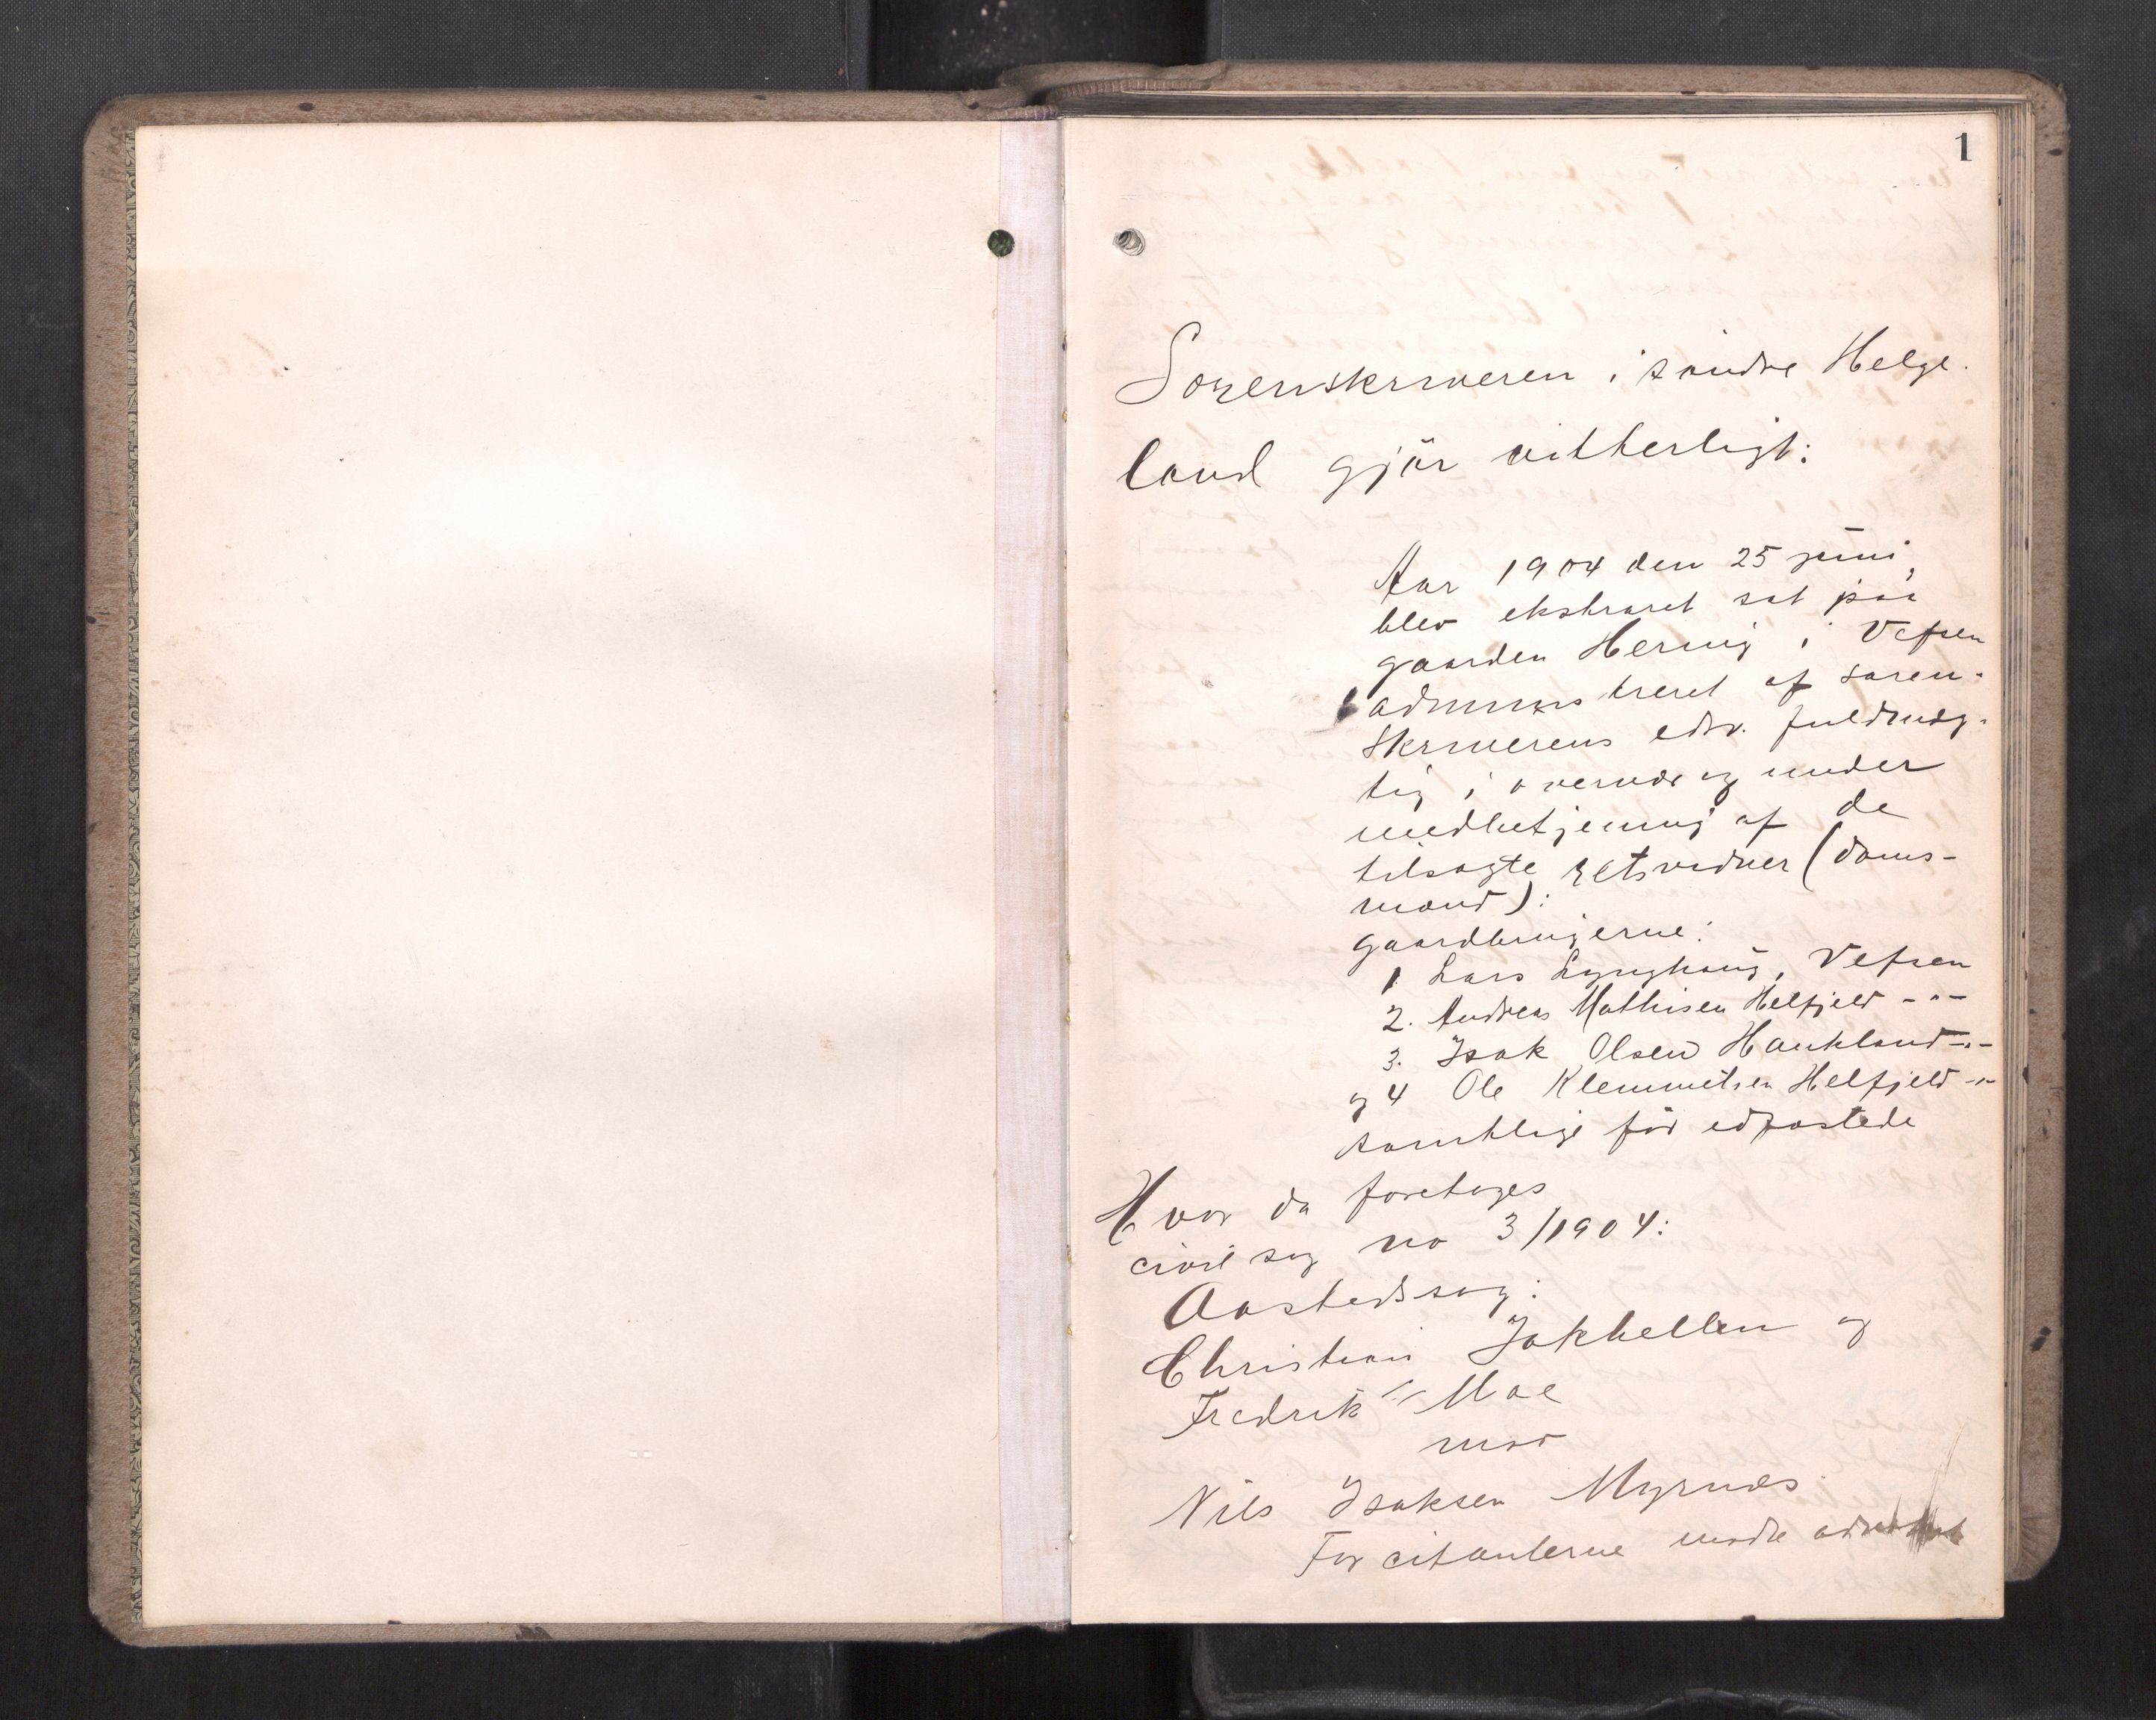 1
Sorenskriveren i søndre Helge-
land gjör vitterligt:
Aar 1904 den 25 juni,
blev ekstraret sat paa
gaarden Hering i Vefsen
administreret af soren-
skriverens edsv. fuldmæg-
tig i overvær og under
medbetjening af de
tilsagte retsvidner (doms-
mænd):
gaardbrugerne:
1 Lars Lynghaug, Vefsen
2. Andreas Mathisen Helfjeld -"-
3. Isak Olsen Haukland -"-
og 4 Ole Klemmetsen Helfjeld -"-
samtlige før edfæstede
Hvor da foretoges
civil sag no 3/1904:
Aastedssag:
Christian Jakhellen og
Fredrik Moe
mod
Nils Isaksen Myrnes
For citanterne mødte